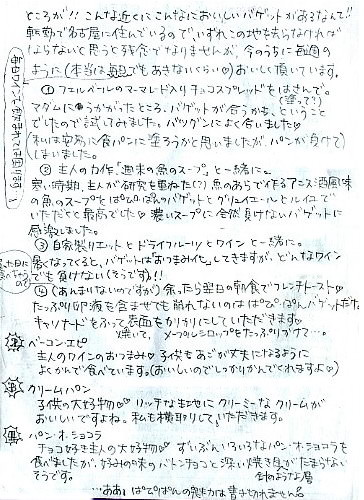 ところが!! こんな近くにこんなにおいしいバゲットがあるなんて!!
転勤で名古屋に住んでいるので、いずれこの地を去らなければ
ならないと思うと残念でなりませんが、今のうちに毎週の
ように(本当は毎日でもあきないくらい♡)おいしく頂いています。
① フェルベールのマーマレード入りチョコスプレッドをはさんで。
(塗って?)
マダムにうかがったところ、バゲットが合うかも、ということ
でしたので試してみました。バツグンによく合いました♡
(私は安易に食パンに塗ろうかと思いましたが、パンが負けて)
しまいました。
② 主人の力作「週末の魚のスープ」と一緒に。
寒い時期、主人が研究を重ねた(?)魚のあらで作るアニス酒風味
の魚のスープとぱぴぱんのバゲットとグリュイエールとルイユで
いただくと最高でした♡ 濃いスープに全然負けないバゲットに
感激しました。
③ 自家製リエットとドライフルーツとワインと一緒に。
暑くなってくると、バゲットはおつまみ化してきますが、どんなワイン
でも負けない(そうです)!!
④ (あんまりないのですが)余ったら翌日の朝食でフレンチトースト♡
たっぷり卵液を含ませても崩れないのはぱぴぱんバゲットだけ。
キャソナードをふって表面をカリカリにしていただきます♡
焼いて、メープルシロップをたっぷりかけて…。
ベーコンエピ
主人のワインのおつまみ♡ 子供もあごが丈夫になるように
よくかんで食べています。(おいしいのでしっかりかんでくれますよ♡)
クリームパン
子供の大好物♡♡ リッチな生地にクリーミーなクリームが
おいしいですよね。私も横取りしていただきます。
パン・オ・ショコラ
チョコ好き主人の大好物♡ ずいぶんいろいろなパン・オ・ショコラを
食べましたが、好みの味のバトンチョコと深い焼き目がたまらない
そうです。
…ああ、ぱぴぱんの魅力は書ききれません